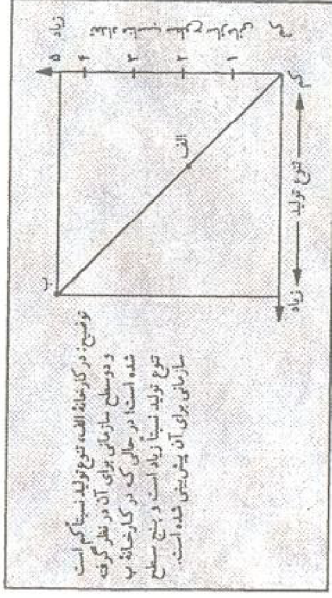 زیاد
۵
۴
۳
۲
۱
کم
تعداد مناسب سطوح سازمانی
ب
الف
کم
تنوع تولید
زیاد
توضیح: در کارخانهٔ الف، تنوع تولید نسبتاً کم است
و دو سطح سازمانی برای آن در نظر گرفته
شده است؛ در حالی که در کارخانهٔ ب
تنوع تولید نسبتاً زیاد است و پنج سطح
سازمانی برای آن پیش‌بینی شده است.